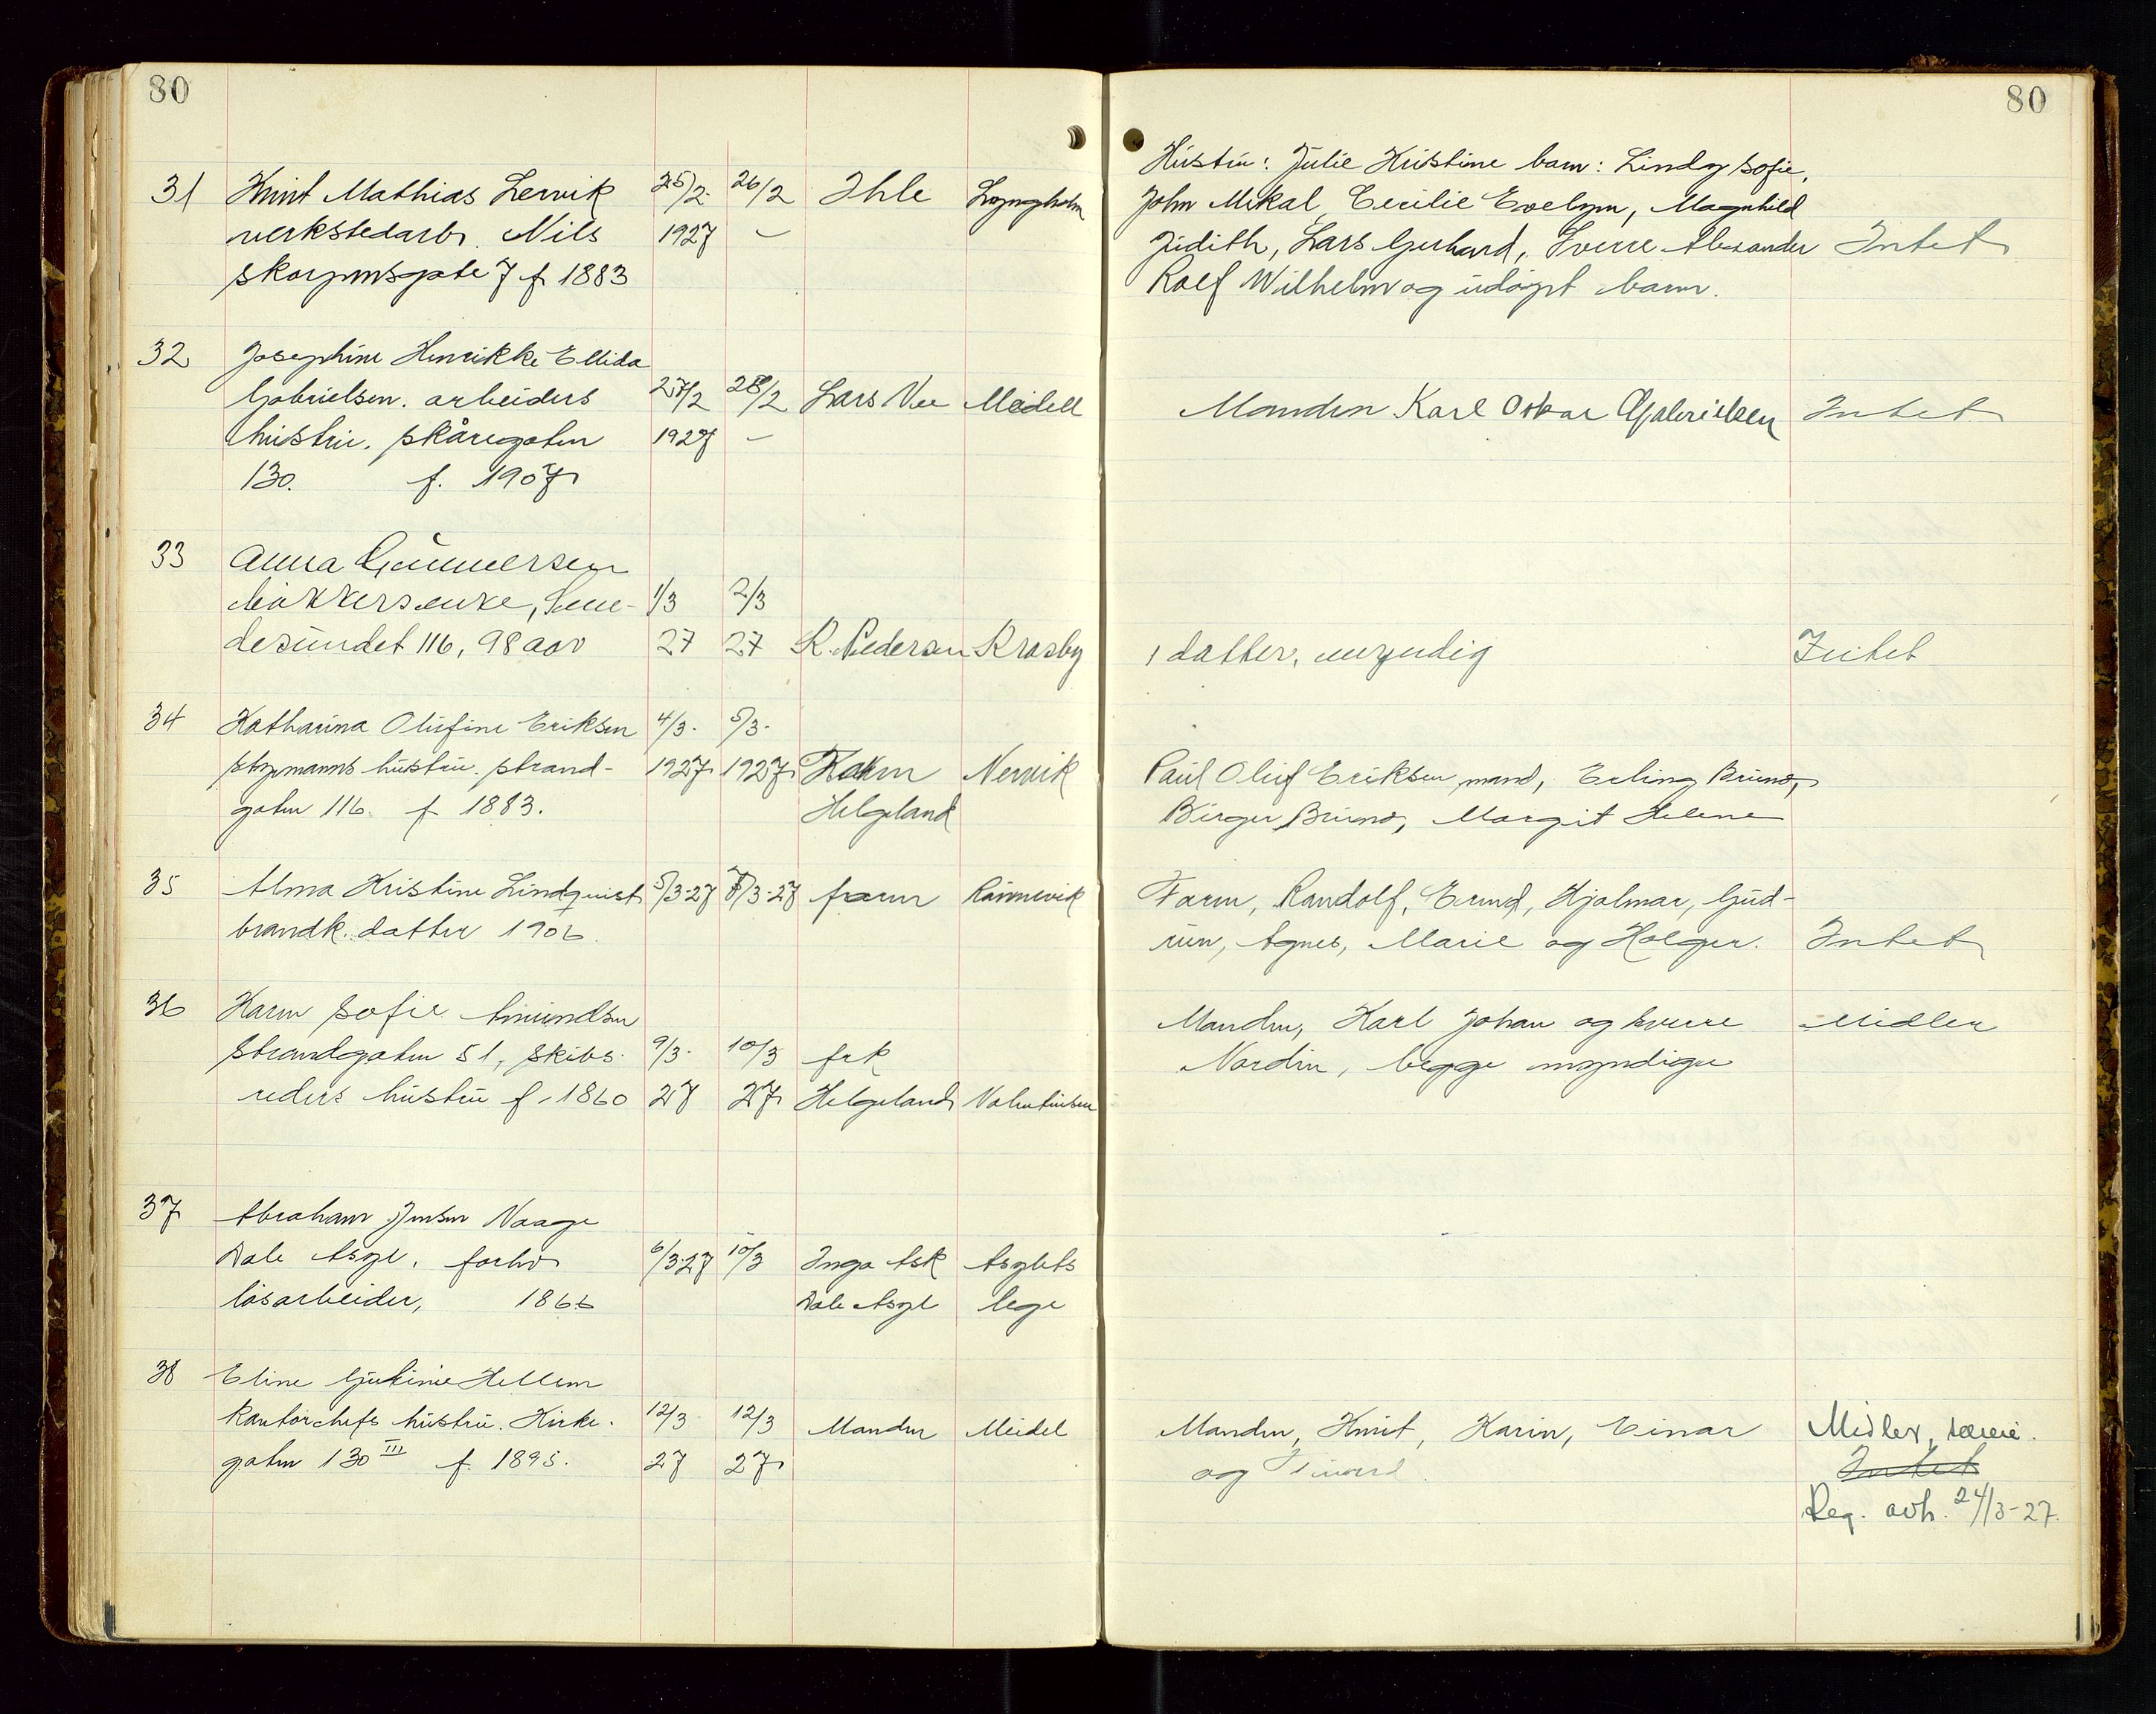 80
31 Knut Mathias Lervik 25/2 26/2 Ihle Lyngholm
verkstedarb. Nils 1927 –
Skorpensgate 7 f. 1883
32 Josephine Henrikke Ellida
Gabrielsen. arbeiders 27/2 28/2 Lars Vee Meidell
hustru. Skåregaten 1927 –
130. f. 1907
33 Anna Gunnersen
bøkkersenke, Sun- 1/3 2/3
desundet 116, 98 aar 27 27 K. Pedersen Krosby
34 Katharina Olufine Eriksen 4/3. 5/3.
styrmanns hustru. Strand- 1927 1927 Karen Nervik
gaten 116. f. 1883. Helgeland
35 Alma Kristine Lindquist 5/3-27 7/3-27 faren Rønnevik
brandk. datter 1906
36 Karen Sofie Amundsen
Strandgaten 51, skibs- 9/3. 10/3 frk
reders hustru f. 1860 27 27 Helgeland Valentinsen
37 Abraham Jensen Naage
Dale Asyl, forhv 6/3-27 10/3 Inga Ask Asylets
løsarbeider, 1866 Dale Asyl lege
38 Eline Gurine Hellem
Kontorchefs hustru. Kirke- 12/3 12/3 Manden Meidel
gaten 130 III f. 1895. 27 27
80
Hustru: Julie Kristine barn: Lindy Sofie,
John Mikal, Cecilie Evelyn, Magnhild
Judith, Lars Gerhard, Sverre Alexander Intet
Rolf Wilhelm og udøpt barn.
Manden Karl Oskar Gabrielsen Intet
1 datter, umyndig Intet
Paul Oluf Eriksen, mand, Erling Bruno,
Birger Bruno, Margit Helene
Faren, Randolf, Erund, Hjalmar, Gud-
run, Agnes, Marie og Holger. Intet
Manden, Karl Johan og Sverre Midler
Nordin, begge myndige
Manden, Knut, Karin, Einar Midler, særeie.
og Sivard. Intet
Reg. avh. 24/3-27.